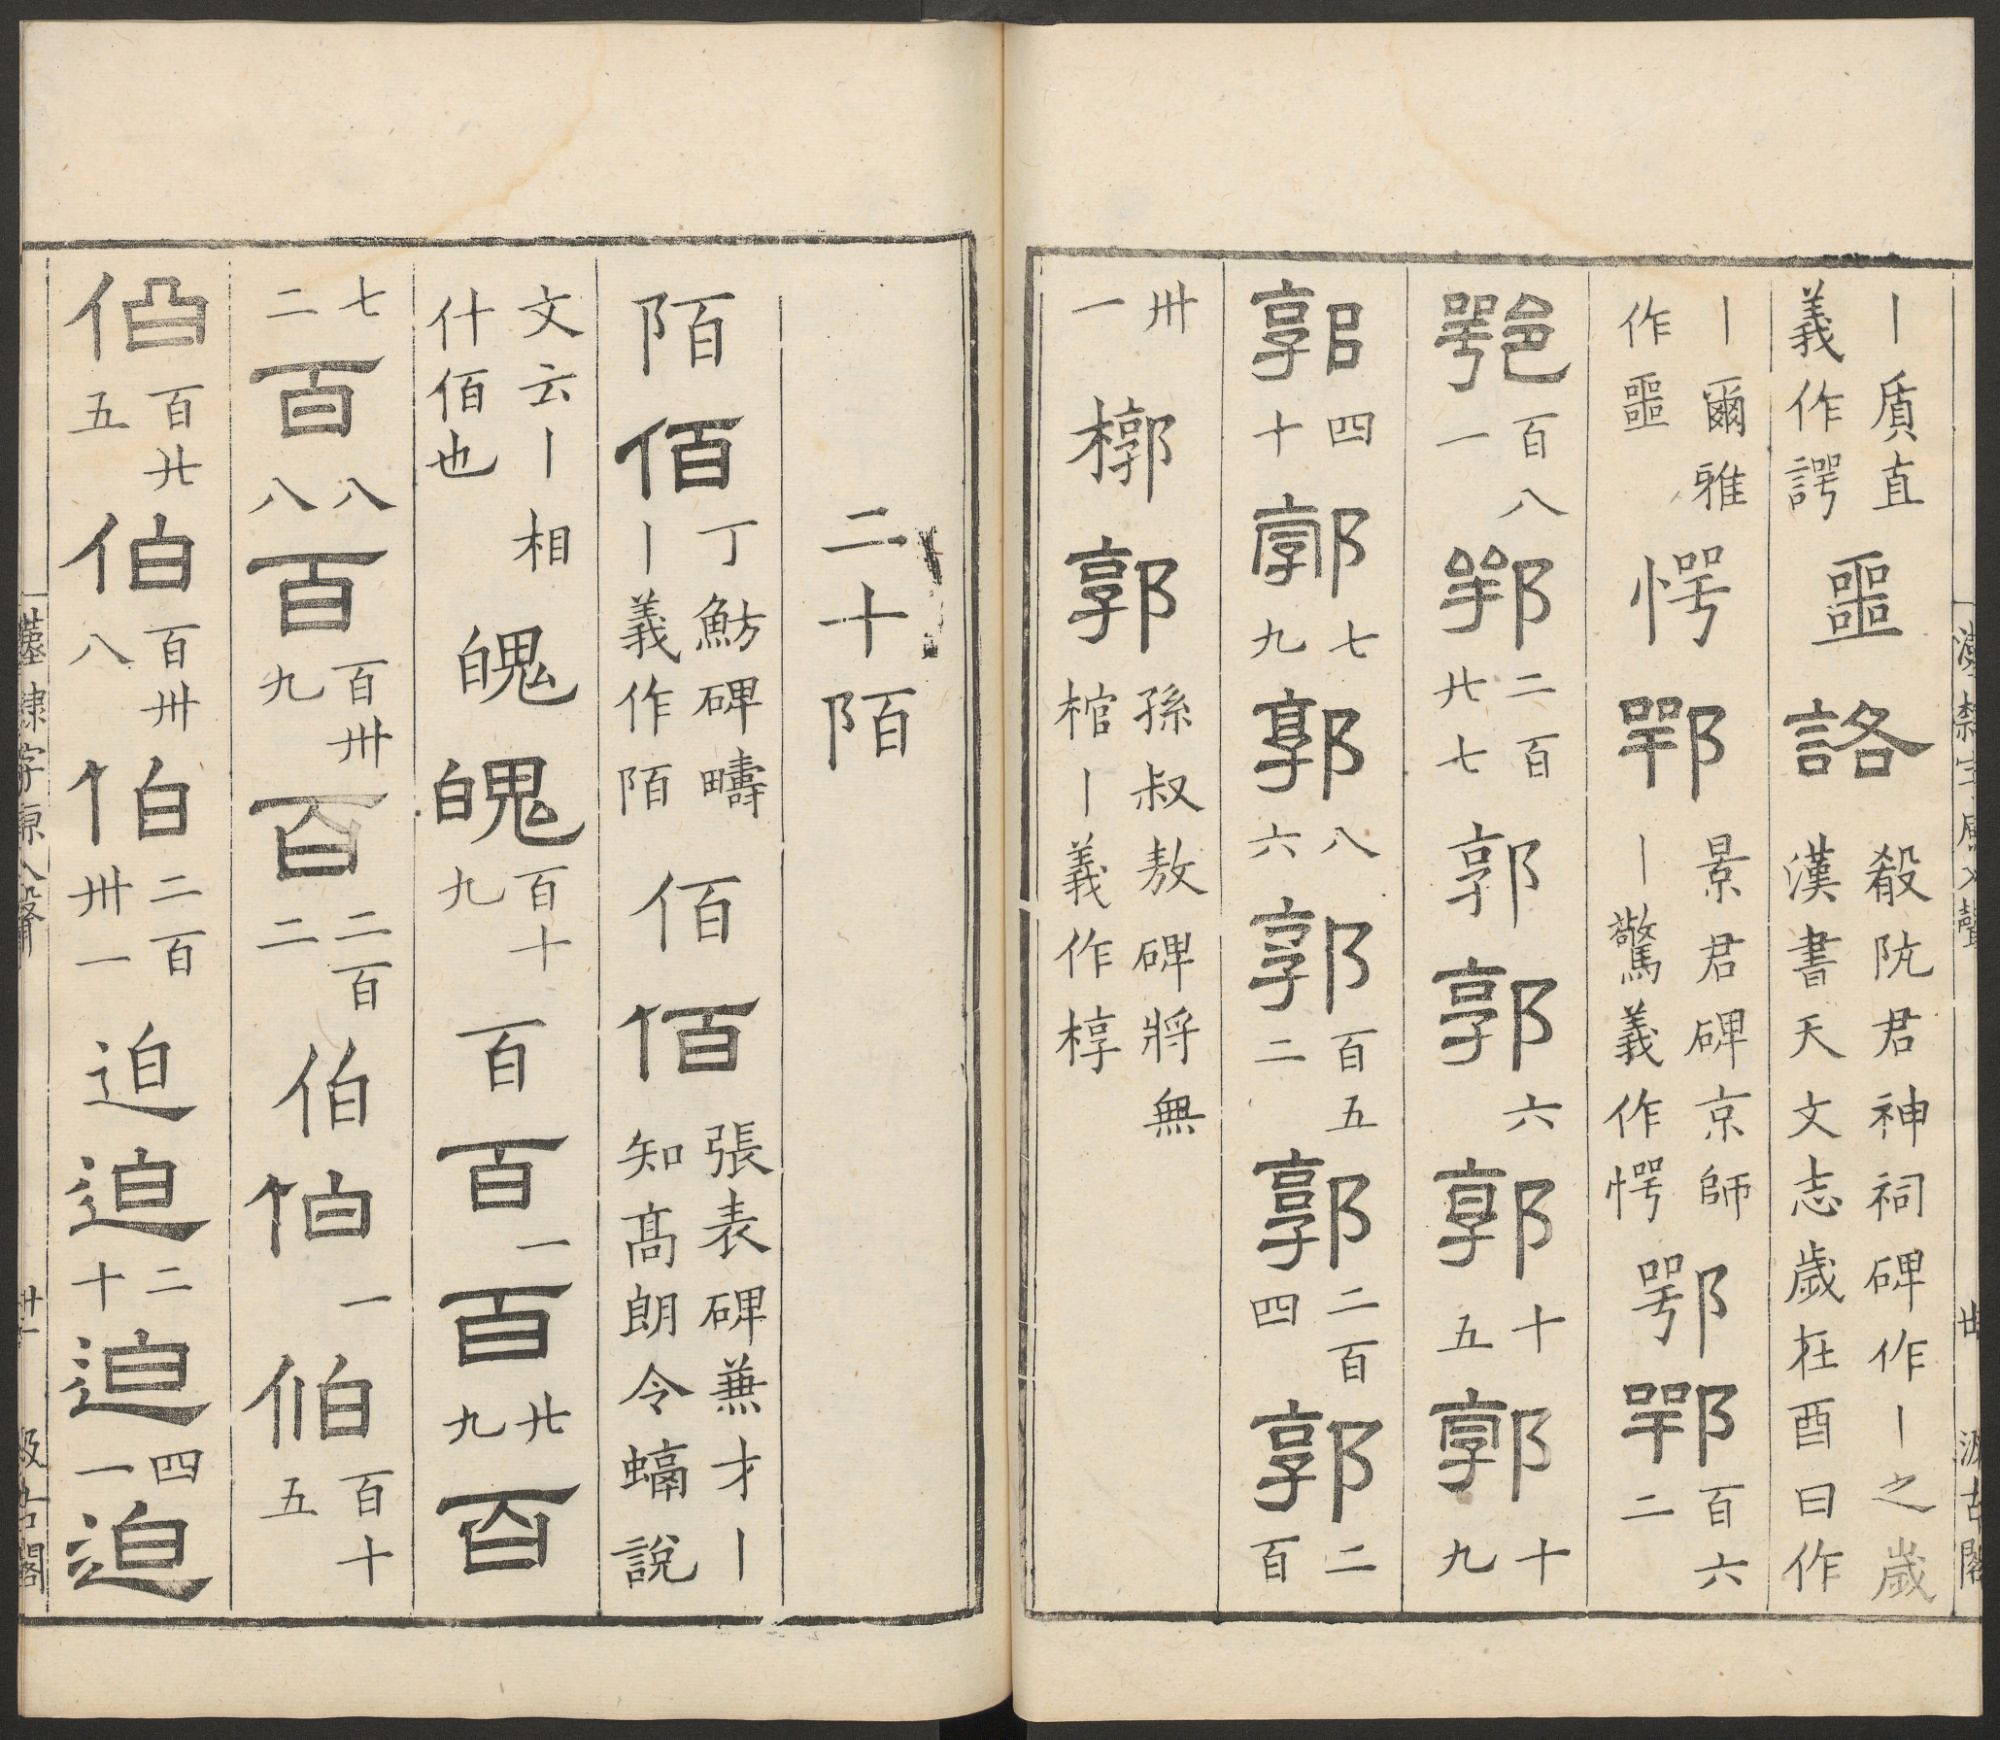 漢隸字原入聲 卅 汲古閣
丨質直義作諤 噩 詻 殽阬君神祠碑作丨之歲漢書天文志歲在酉曰作
丨爾雅作噩 愕 鄂 景君碑京師丨驚義作愕 鄂 鄂 百六二
鄂 百八一 鄂 二百廿七 郭 郭 六 郭 十五 郭 十九
郭 四十 郭 七九 郭 八六 郭 百五二 郭 二百四 郭 二百
卅一 槨 郭 孫叔敖碑將無棺丨義作椁
二十陌
陌 佰 丁魴碑疇丨義作陌 佰 佰 張表碑兼才丨知高朗令蝺說
文云丨相什佰也 魄 魄 百十九 百 百 一 百 廿九 百
七二 百 八八 百 百卅九 百 二百二 伯 伯 一 伯 百十五
伯 百廿五 伯 百卅八 伯 二百卅一 迫 迫 二十 迫 四一 迫
漢隸字原入聲 卅一 汲古閣